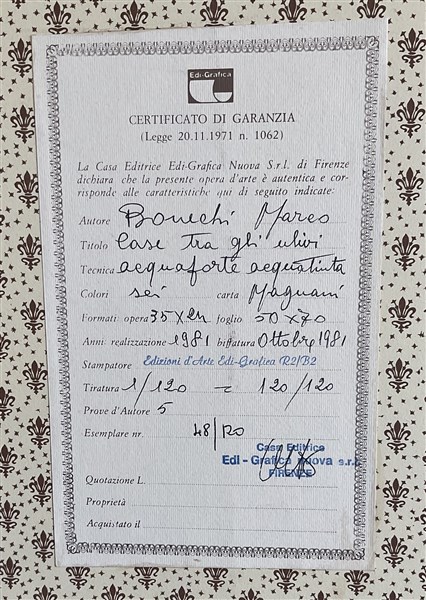 Edi-Grafica
CERTIFICATO DI GARANZIA
(Legge 20.11.1971 n. 1062)
La Casa Editrice Edi-Grafica Nuova S.r.l. di Firenze
dichiara che la presente opera d'arte è autentica e cor-
risponde alle caratteristiche qui di seguito indicate:
Autore Bonechi Marco
Titolo Case tra gli ulivi
Tecnica acquaforte acquatinta
Colori sei carta Magnani
Formati: opera 35 x foglio 50x70
Anni: realizzazione 1981 biffatura Ottobre 1981
Stampatore Edizioni d'Arte Edi-Grafica R2/B2
Tiratura 1/120 = 120/120
Prove d'Autore 5
Esemplare nr. 48/120
Casa Editrice
Edi - Grafica nuova s.r.l.
FIRENZE
Quotazione L.
Proprietà
Acquistato il